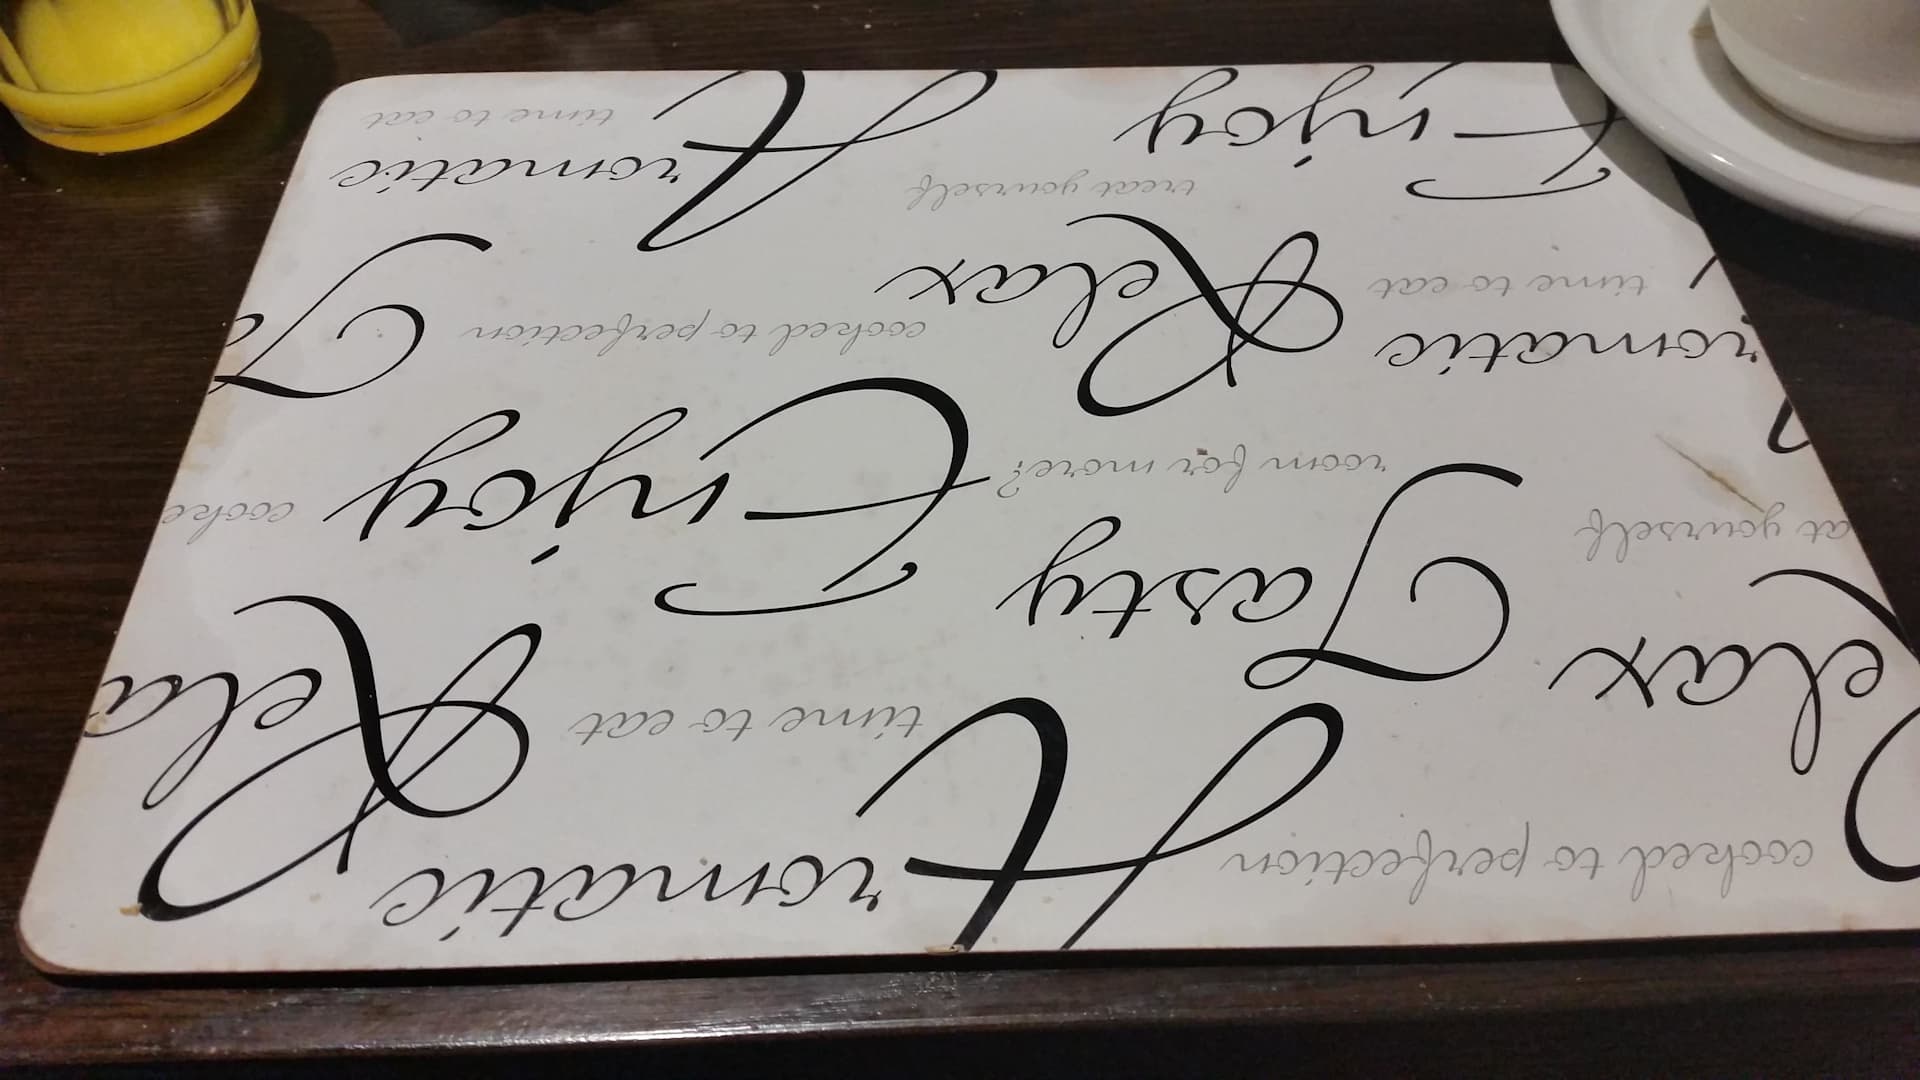 cooked to perfection
Aromatic
Relax
time to eat
Rela
Tasty
at yourself
Enjoy
cooke
room for more?
romatic
Relax
cooked to perfection
Ta
time to eat
Enjoy
treat yourself
Aromatic
time to eat